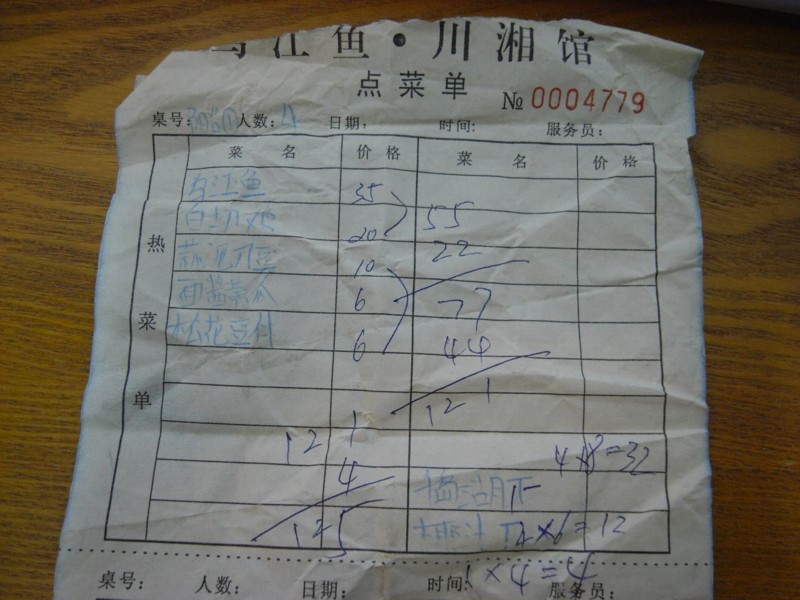 乌江鱼·川湘馆
点菜单
№ 0004779
桌号: 人数: 4 日期: 时间: 服务员:
菜 名 价 格 菜 名 价 格
热菜单
乌江鱼 35
白切鸡 20 55
蒜泥刀豆 10 22
面酱黄瓜 6 77
松花豆付 6 44
121
121
4×8=32
4
125
2×6=12
1×4=4
桌号: 人数: 日期: 时间: 服务员: